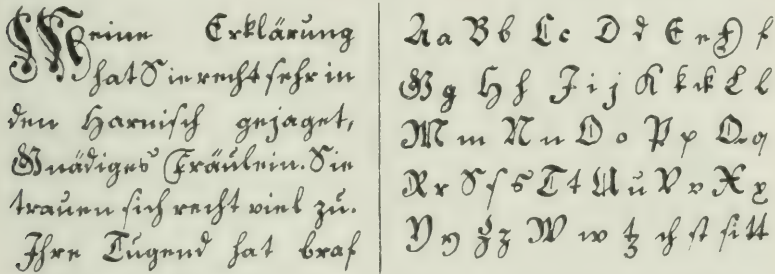 Meine Erklärung
hat Sie recht sehr in
den Harnisch gejaget,
Gnädiges Fräulein. Sie
trauen sich recht viel zu.
Ihre Tugend hat braf
A a B b C c D d E e F f
G g H h I i j K k ck L l
M m N n O o P p Q q
R r S ſ s T t U u V v X x
Y y Z z W w tz ch st ſi tt